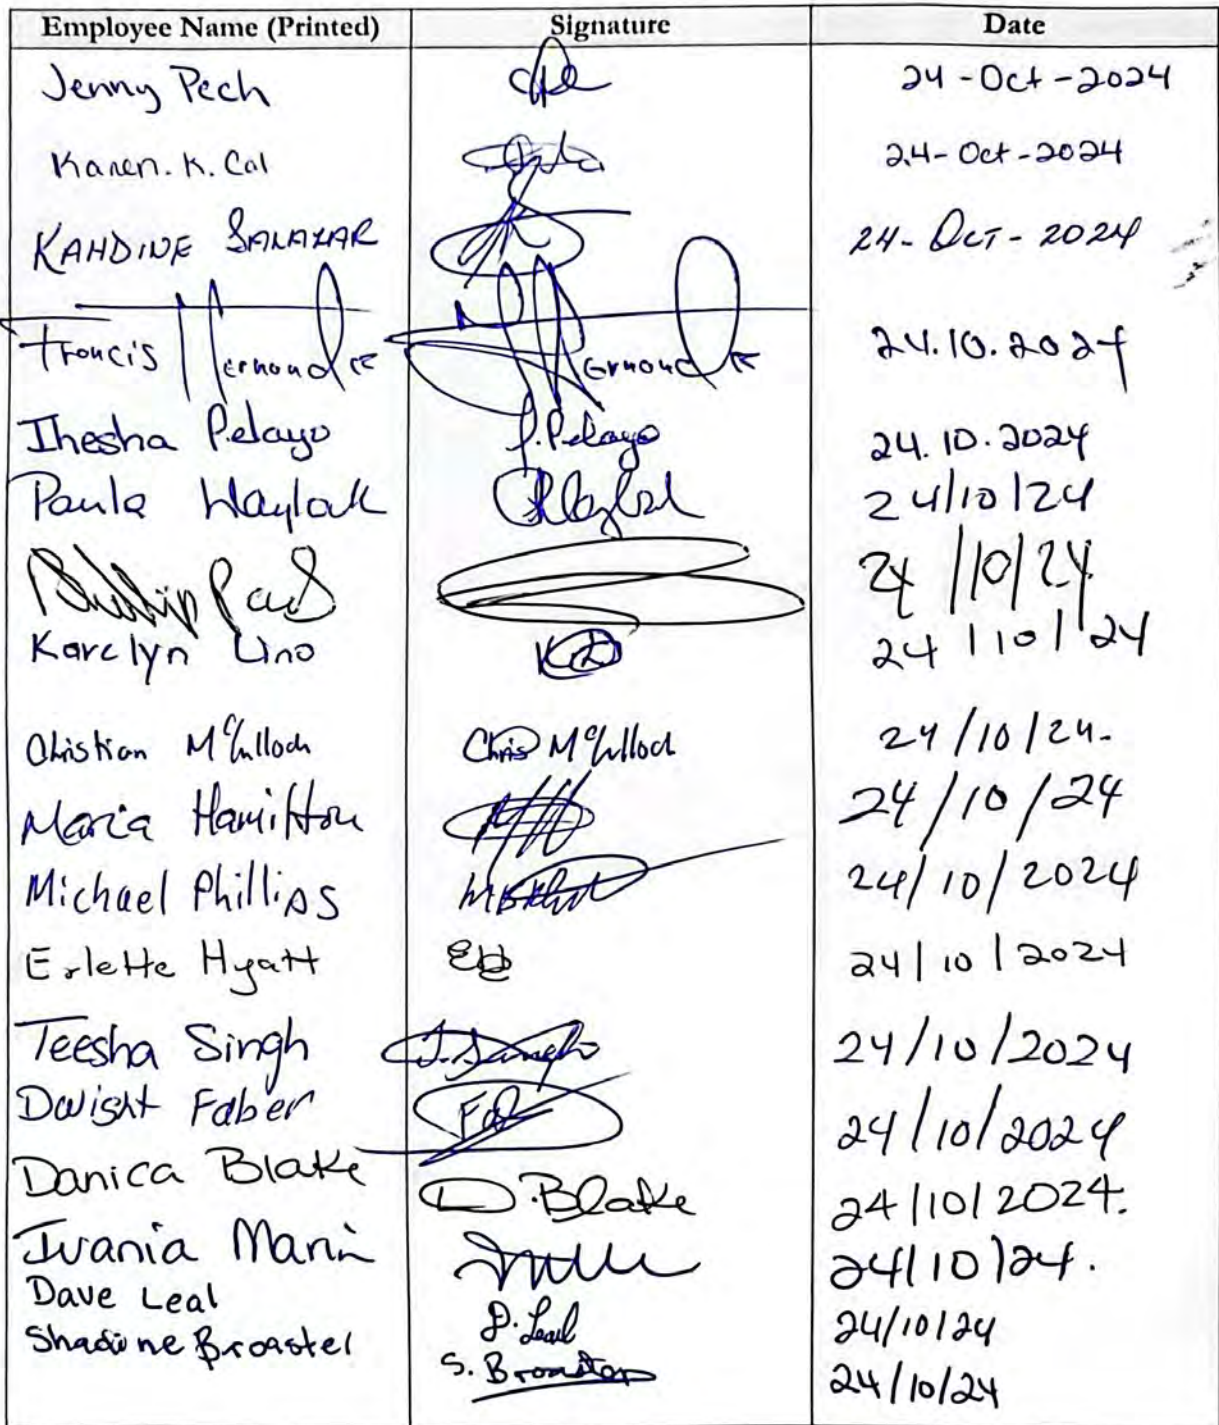 Employee Name (Printed) Signature Date
Jenny Pech 24-Oct-2024
Karen. K. Cal 24-Oct-2024
KAHDINE SALAZAR 24-OCT-2024
Francis Hernandez Hernandez 24.10.2024
Ihesha Pelayo I.Pelayo 24.10.2024
Paula Waylak 24/10/24
Phillip Paul 24/10/24
Karelyn Lino 24/10/24
Christian McCulloch Chris McCulloch 24/10/24.
Maria Hamilton 24/10/24
Michael Phillips 24/10/2024
Erlette Hyatt EH 24/10/2024
Teesha Singh T.Singh 24/10/2024
Dwight Faber 24/10/2024
Danica Blake D.Blake 24/10/2024.
Ivania Marin 24/10/24.
Dave Leal D.Leal 24/10/24
Shadine Broaster S. Broaster 24/10/24